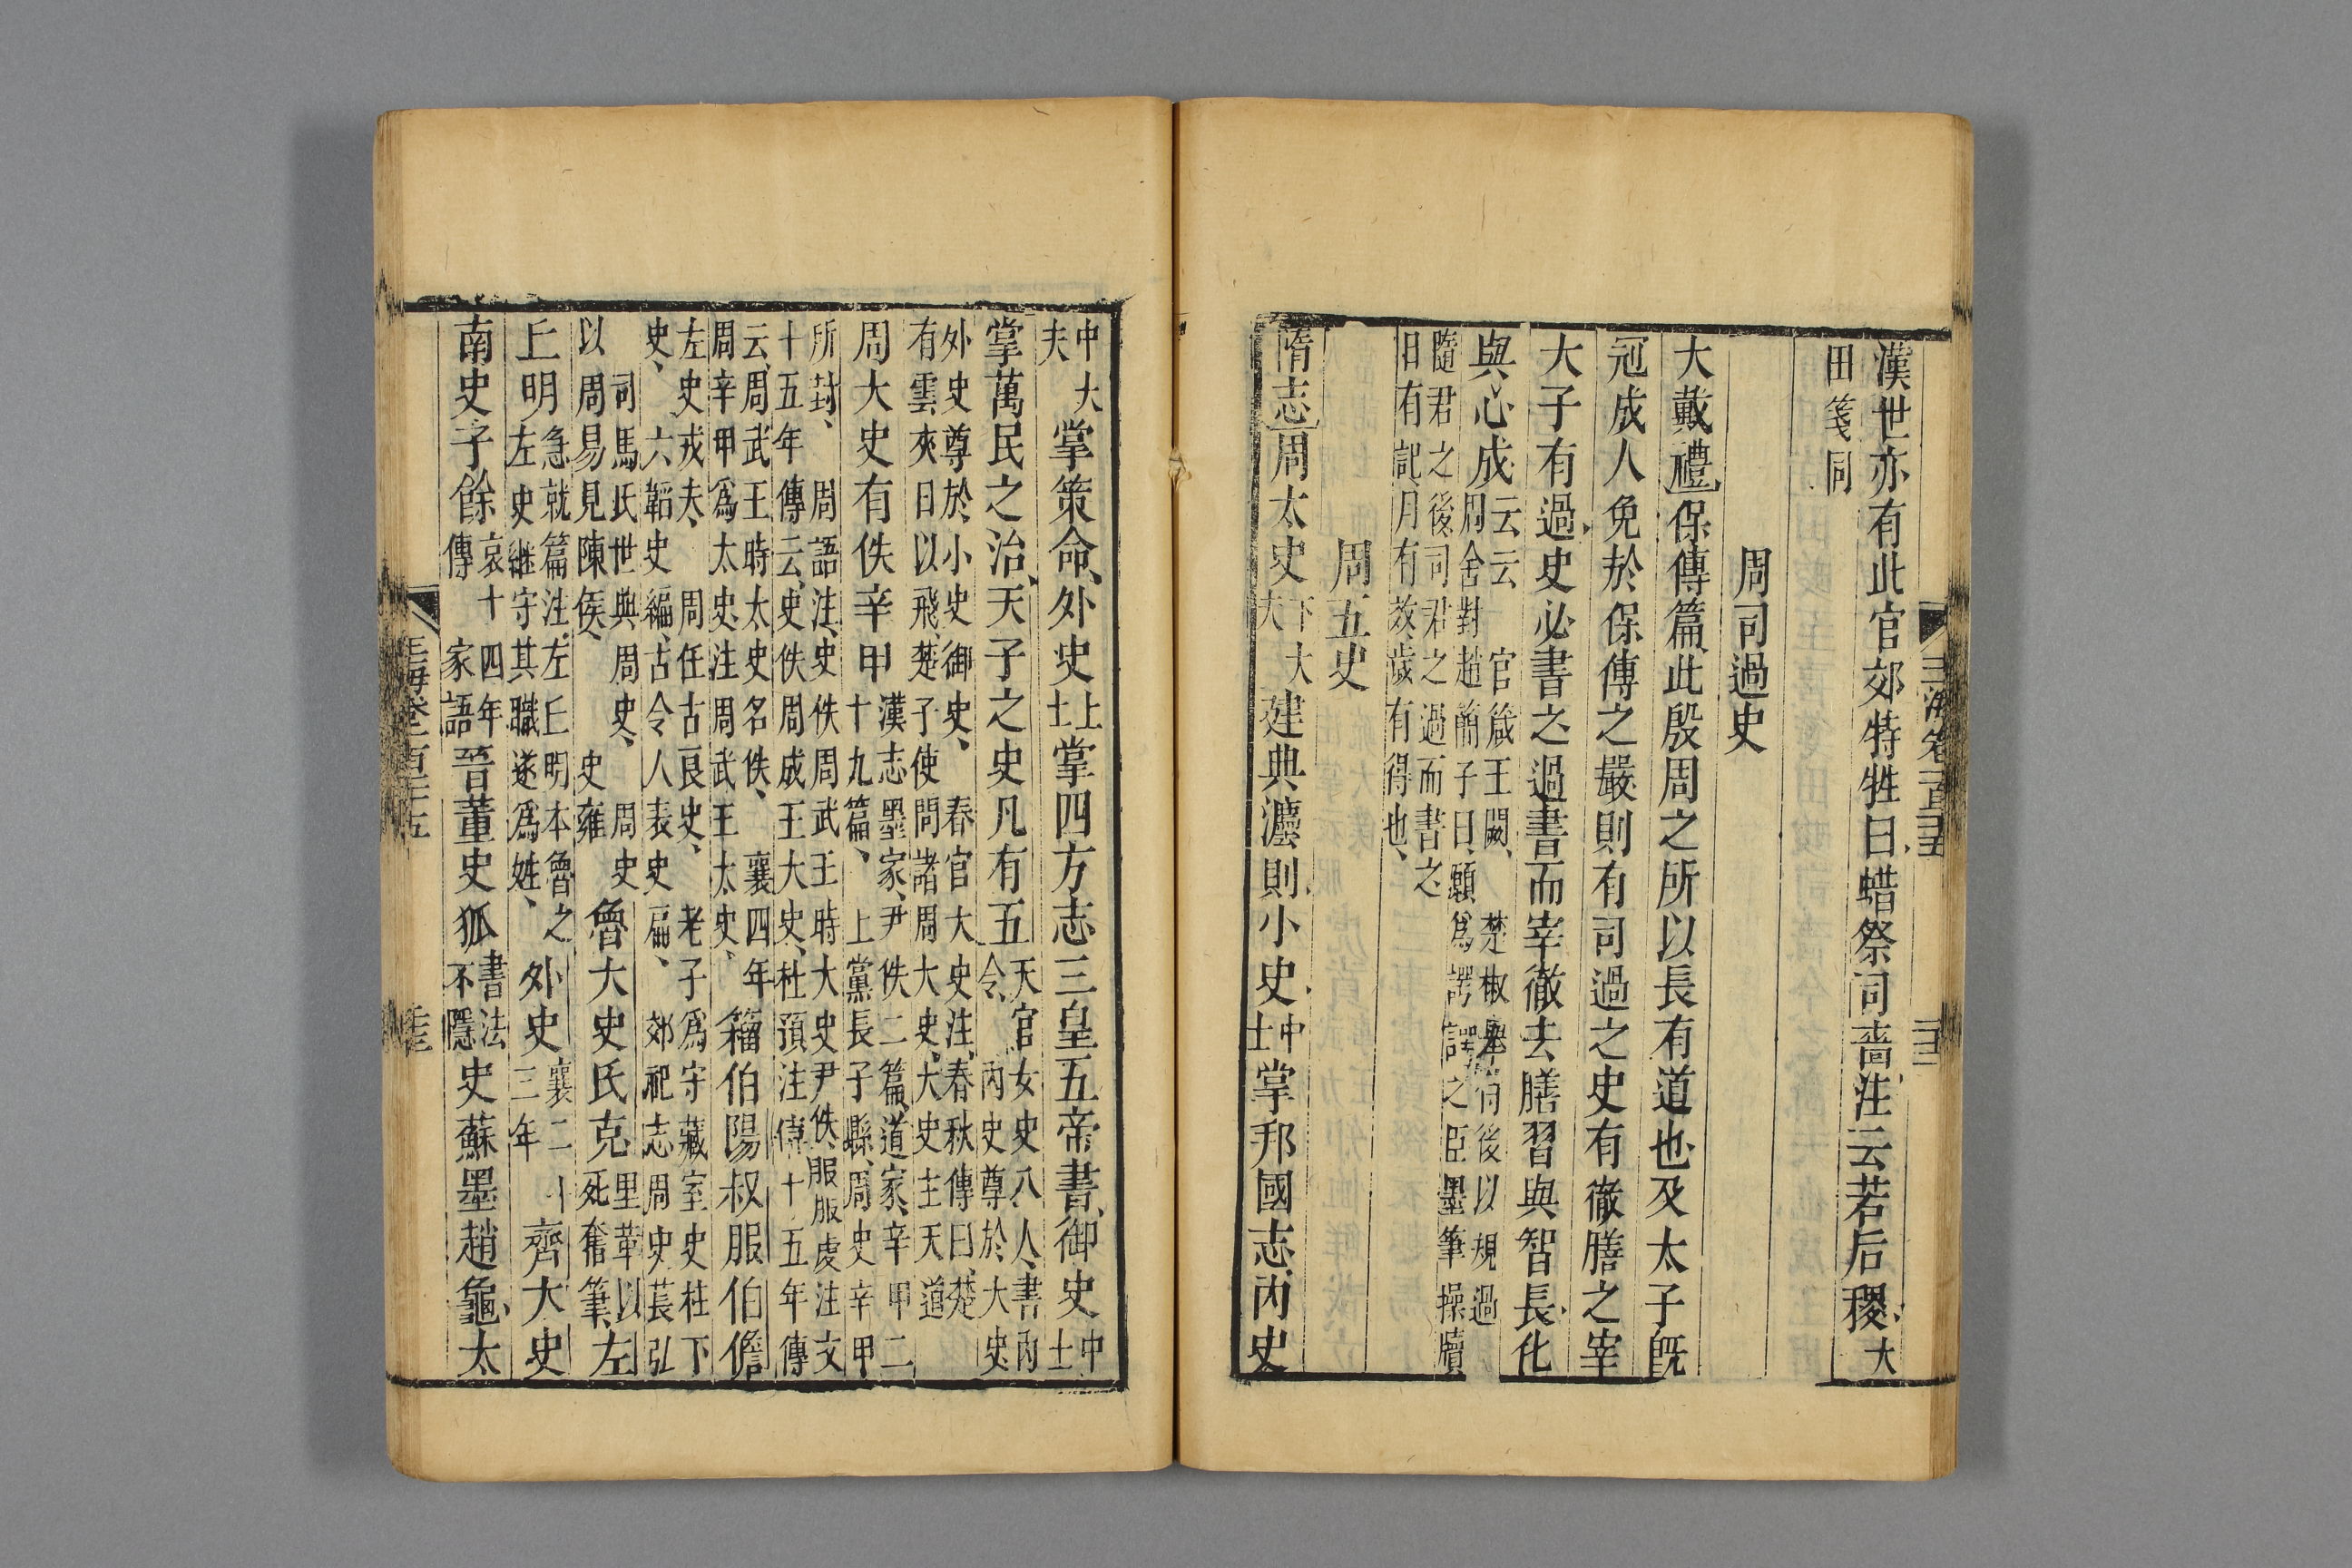 漢世亦有此官郊特牲曰蜡祭司嗇注云若后稷大
田箋同
周司過史
大戴禮保傅篇此殷周之所以長有道也及太子旣
冠成人免於保傅之嚴則有司過之史有徹膳之宰
大子有過史必書之過書而宰徹去膳習與智長化
與心成云云 官箴王闕 楚椒舉曰後以規過
周舍對趙簡子曰願爲諤諤之臣墨筆操牘
隨君之後司君之過而書之
日有記月有效歲有得也
周五史
隋志周太史下大
夫建典灋則小史中
士掌邦國志內史
中大
夫掌策命外史上
士掌四方志三皇五帝書御史中
士
掌萬民之治天子之史凡有五天官女史八人書內
令 內史尊於大史
外史尊於小史御史 春官大史注春秋傳曰楚
有雲夾日以飛楚子使問諸周大史大史主天道
周大史有佚辛甲漢志墨家尹佚二篇道家辛甲二
十九篇 上黨長子縣周史辛甲
所封 周語注史佚周武王時大史尹佚服虔注文
十五年傳云史佚周成王大史杜預注僖十五年傳
云周武王時太史名佚 襄四年
周辛甲爲太史注周武王太史籕伯陽叔服伯儋
左史戎夫 周任古良史 老子爲守藏室史柱下
史 六韜史編古今人表史扁 郊祀志周史萇弘
司馬氏世典周史 周史
以周易見陳侯 史雍魯大史氏克里革以
死奮筆左
丘明急就篇注左丘明本魯之
左史繼守其職遂爲姓外史襄二十
三年齊大史
南史子餘哀十四年
傳 家語晉董史狐書法
不隱史蘇墨趙龜太